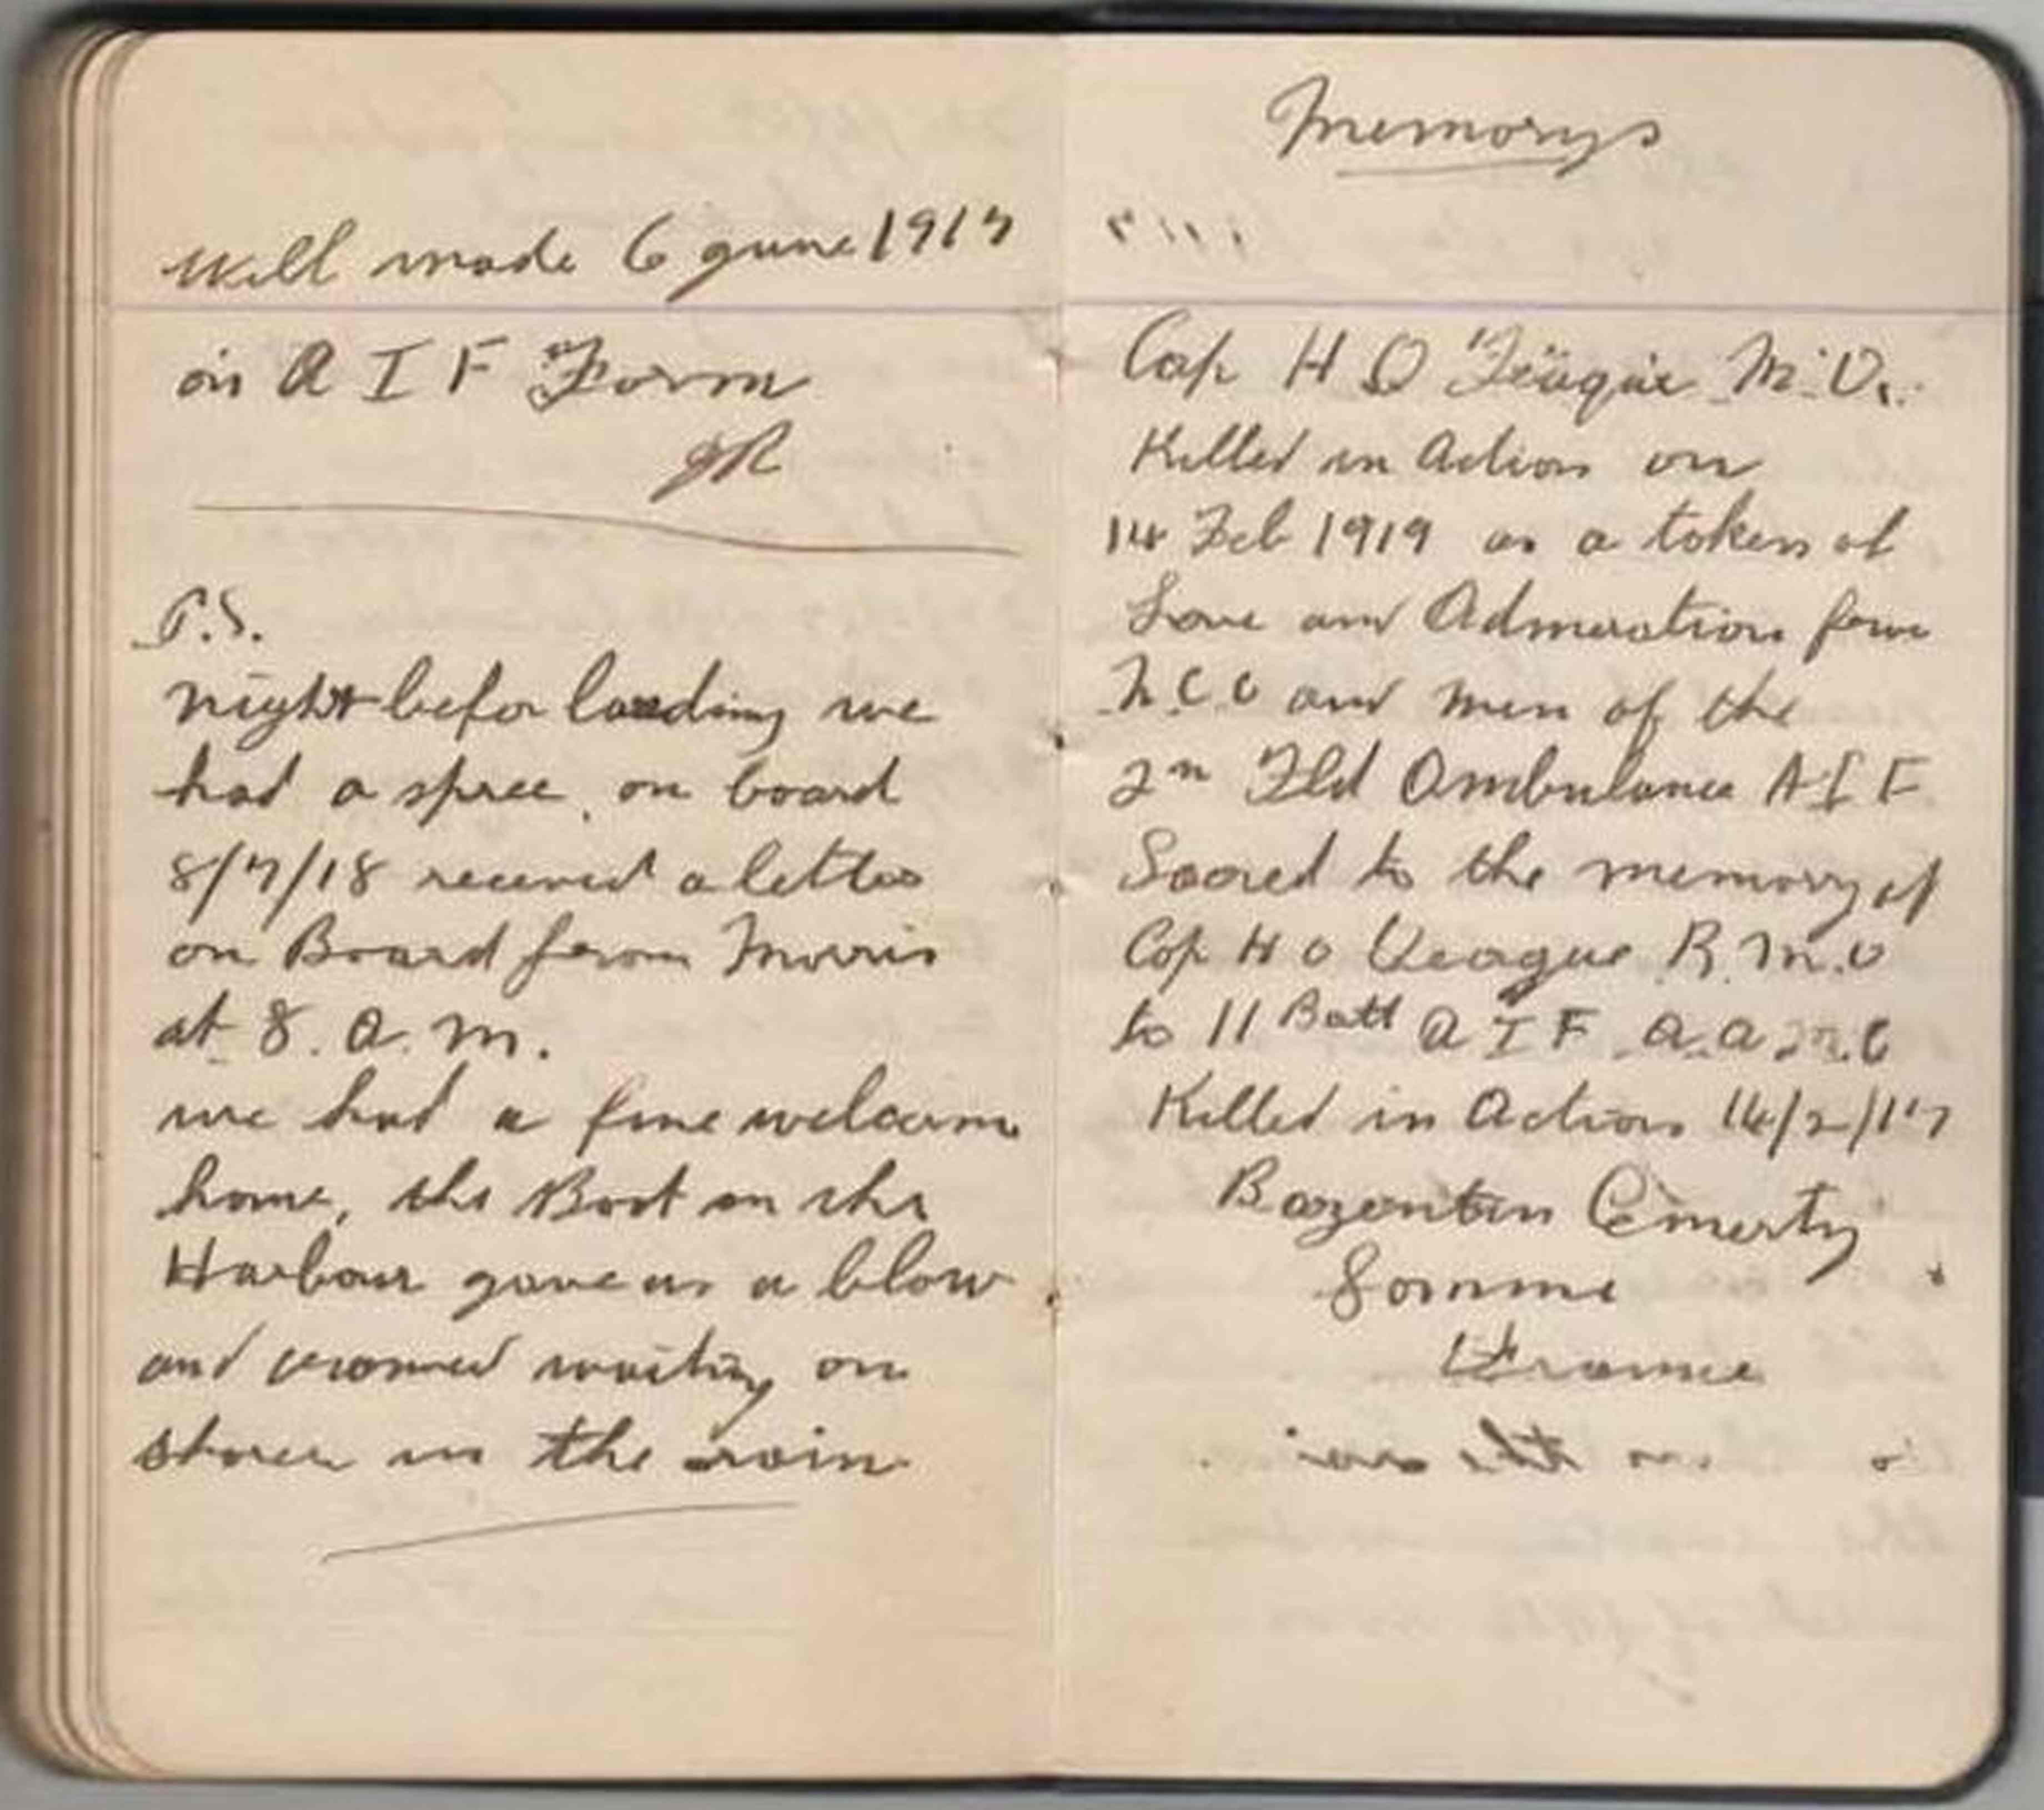 Will made 6 June 1917
on A I F Form
JR
P.S.
night befor landing we
had a spree, on board
8/7/18 received a letter
on Board from Morris
at 8. a. m.
we had a fine welcome
home, the Boat on the
Harbour gave us a blow
and crowned waiting on
shore in the rain
Memorys
Cap H O Teague M.O.
Killed in Action on
14 Feb 1919 as a token of
Love and Admiration from
N.C.O and men of the
2n Fld Ambulance A I F
Sacred to the memory of
Cap H O Teague R.M.O
to 11 Batt A I F A.A.M.C
Killed in Action 14/2/17
Bazentin Cemerty
Somme
France